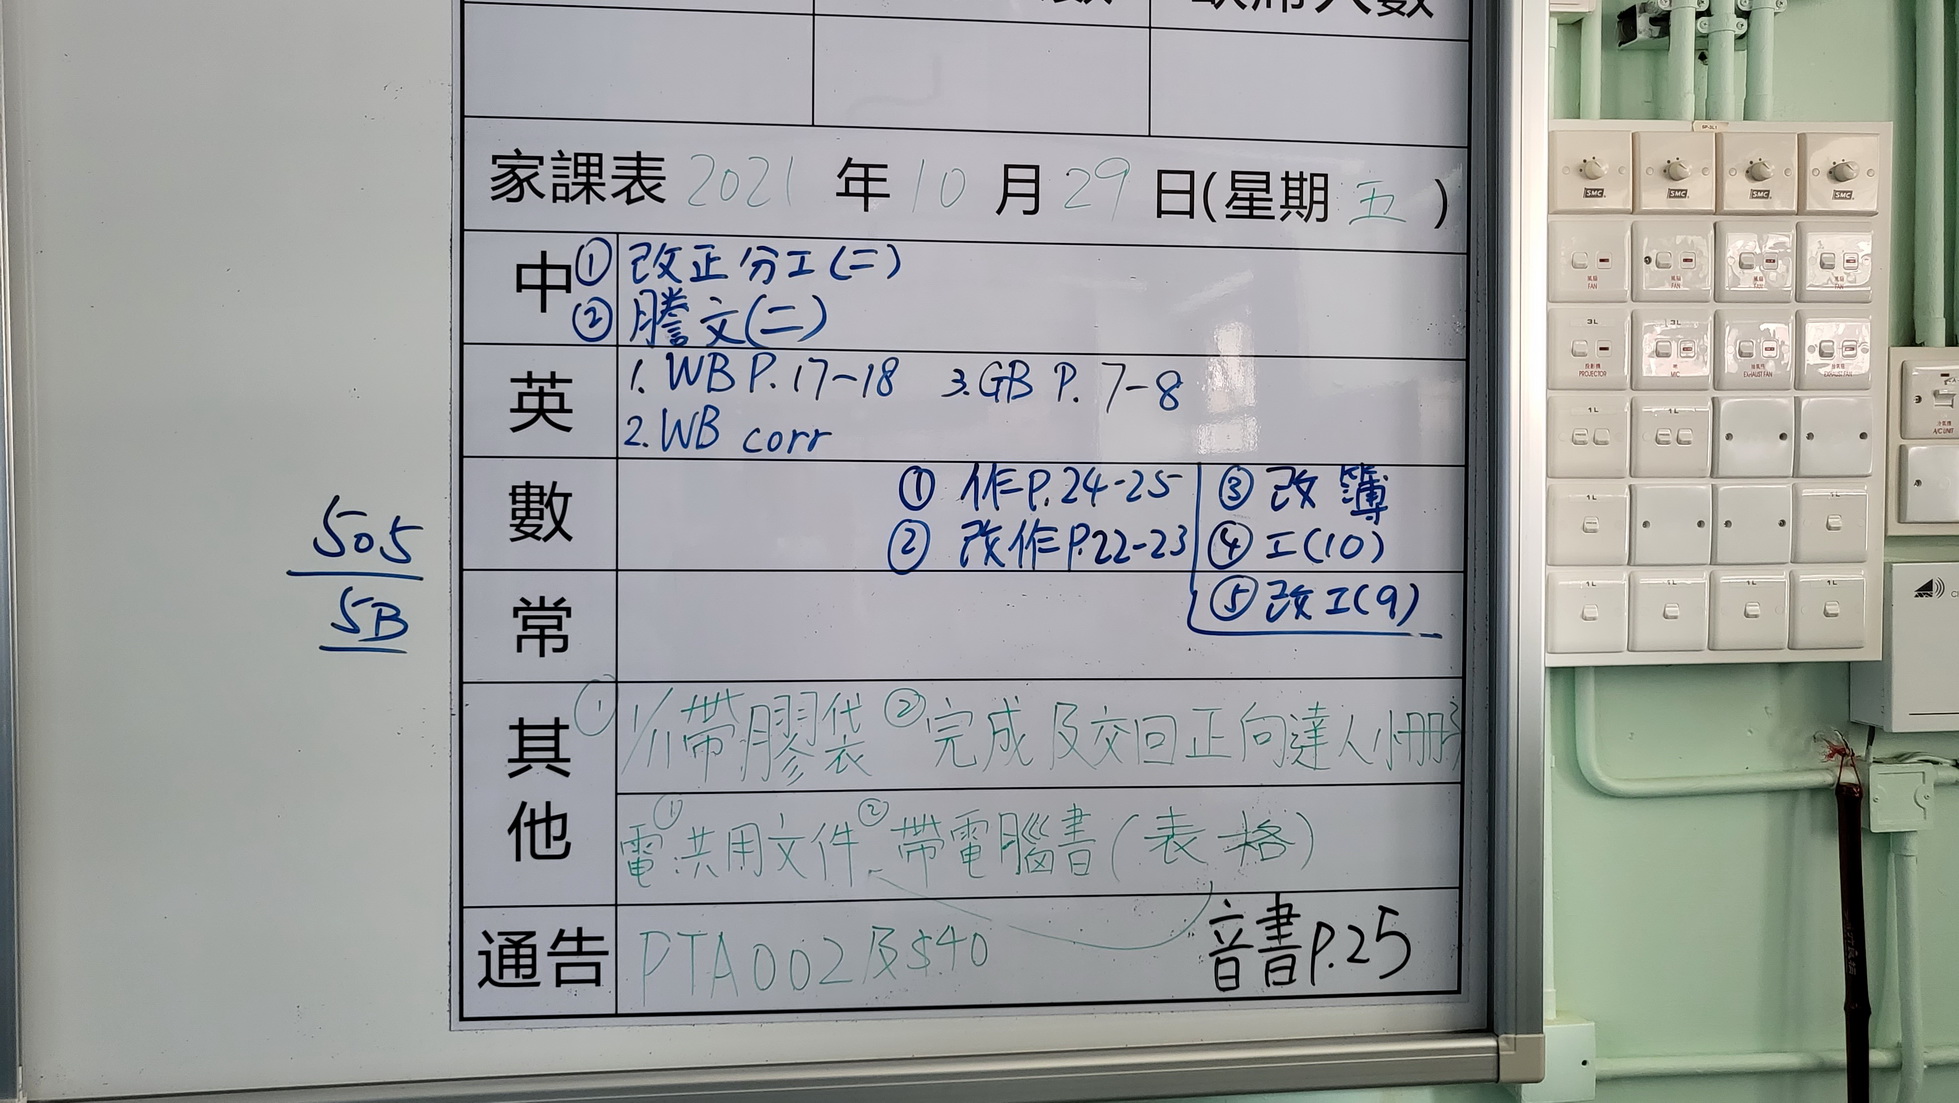 家課表 2021 年 10 月 29 日(星期 五 )
中 ① 改正分工(二)
② 謄文(二)
英 1. WB P.17-18 3. GB P. 7-8
2. WB corr
數 ① 作P.24-25 ③ 改簿
② 改作P.22-23 ④ 工(10)
常 ⑤ 改工(9)
505
5B
其他 ① 1/11帶膠袋 ② 完成及交回正向達人小冊
電 ① 共用文件 ② 帶電腦書(表格)
通告 PTA002及$40 音書P.25
SMC SMC SMC SMC
FAN FAN FAN FAN
3L 3L
PROJECTOR MIC EXHAUST FAN EXHAUST FAN
A/C UNIT
1L 1L
1L 1L
1L 1L 1L 1L